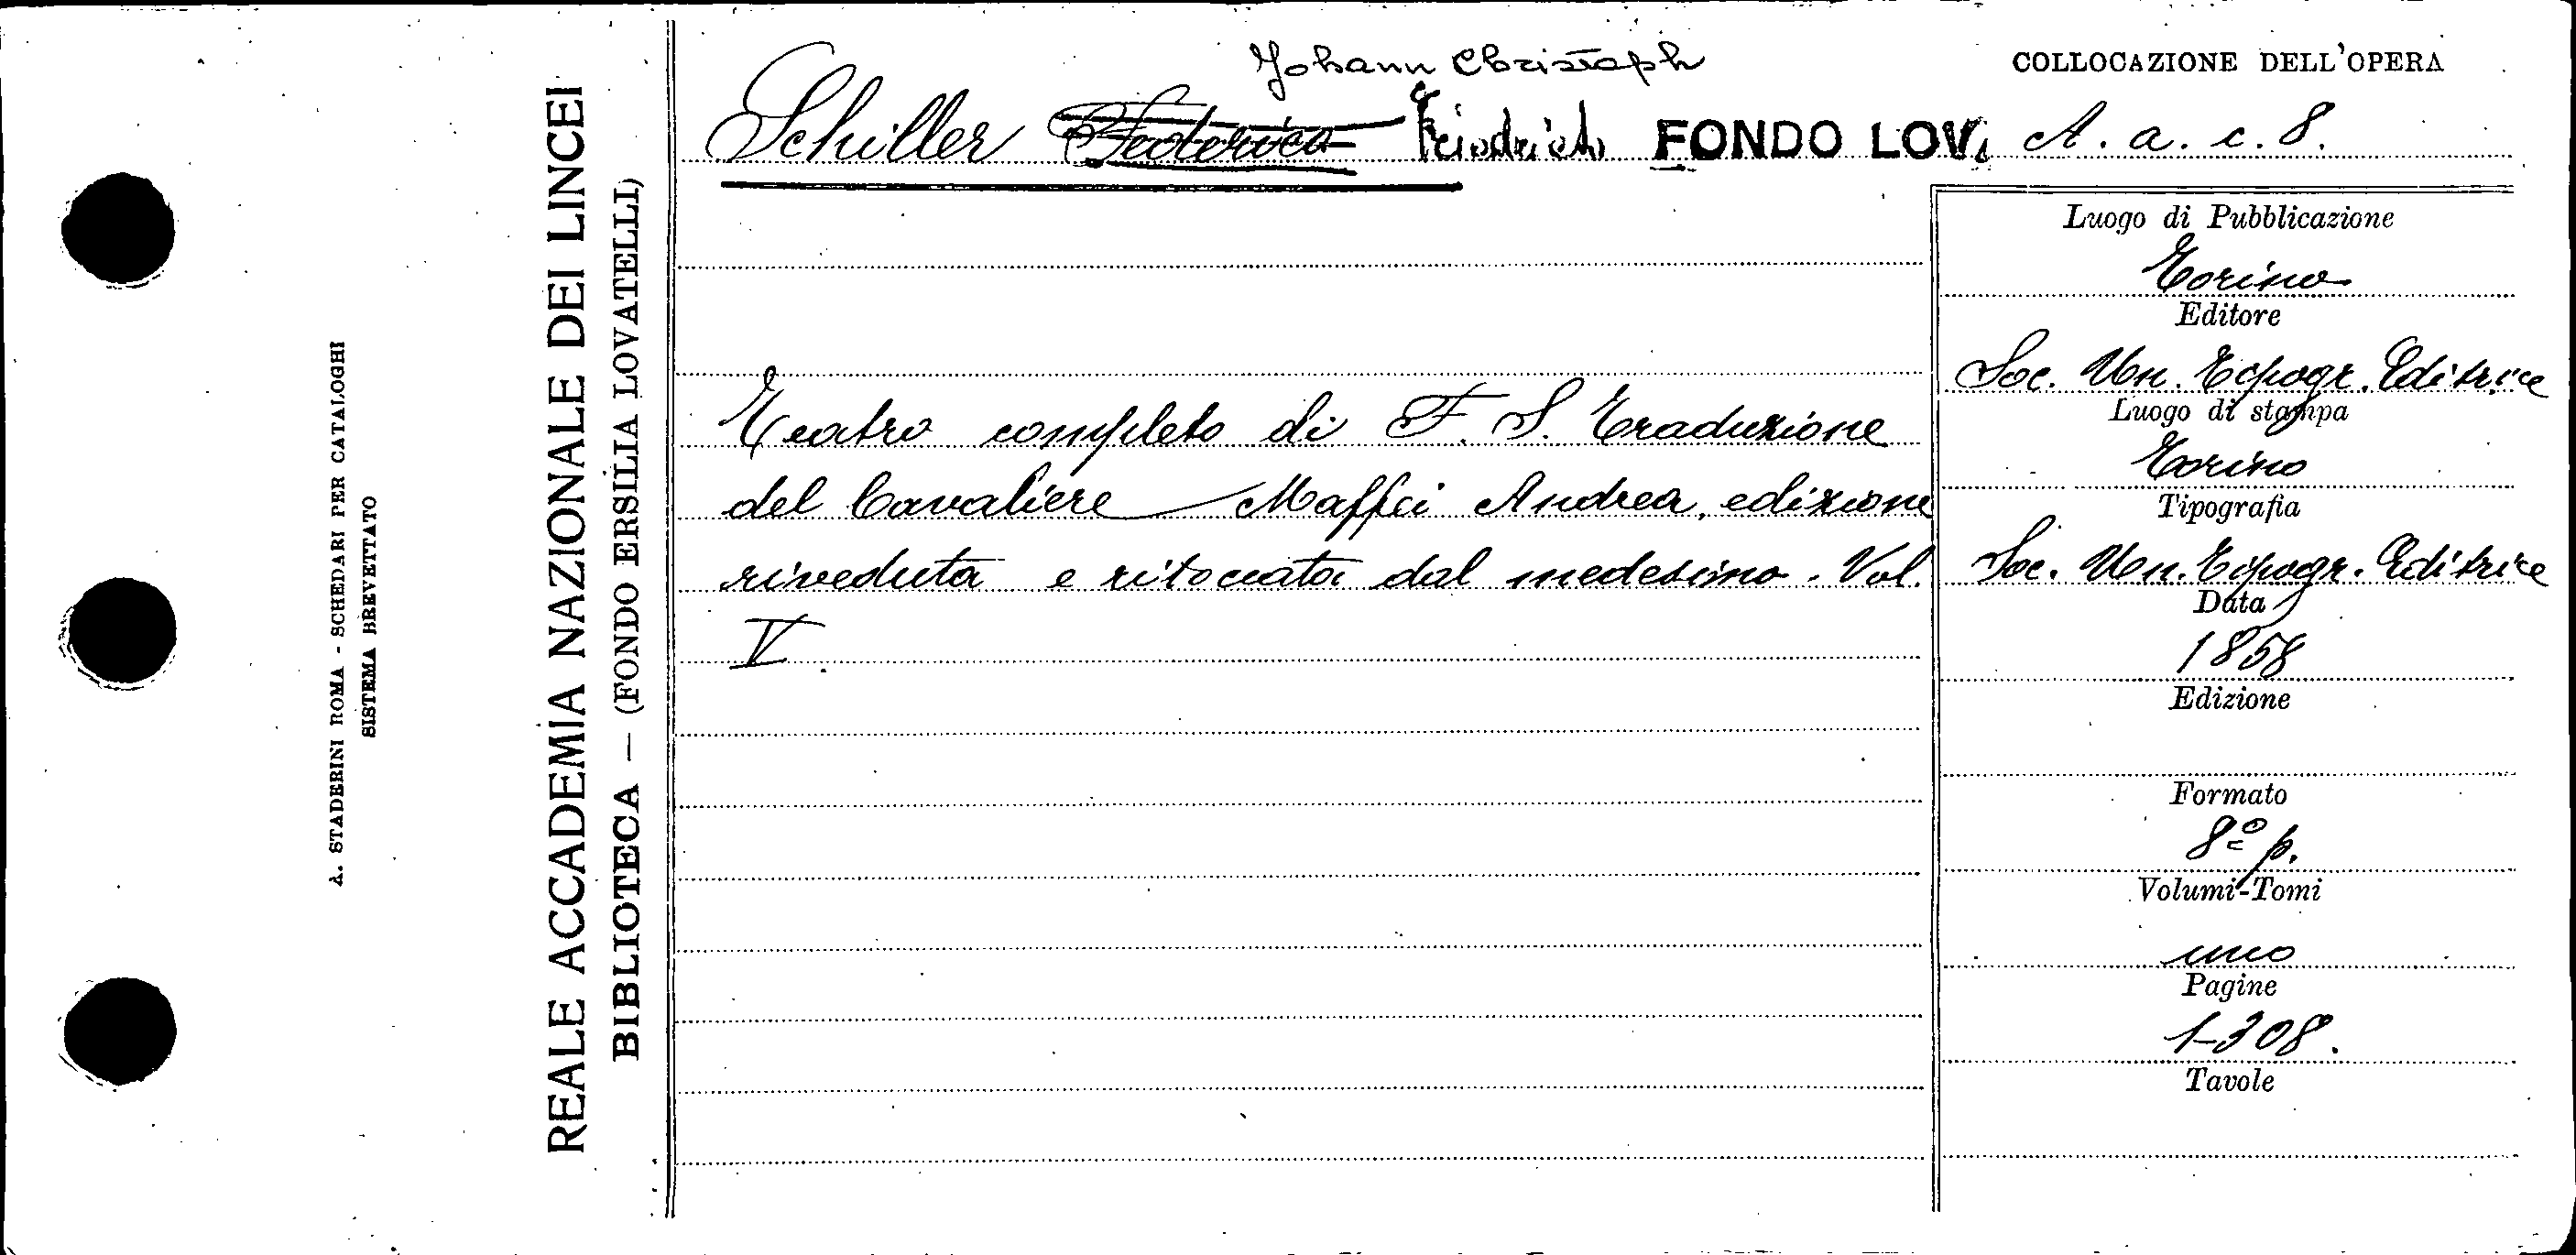 A. STADERINI ROMA - SCHEDARI PER CATALOGHI
SISTEMA BREVETTATO
REALE ACCADEMIA NAZIONALE DEI LINCEI
BIBLIOTECA — (FONDO ERSILIA LOVATELLI)
Johann Christoph
Schiller Federico Friedrich FONDO LOV.
COLLOCAZIONE DELL'OPERA
A. a. c. 8.
Teatro completo di F. S. Traduzione
del Cavaliere Maffei Andrea, edizione
riveduta e ritoccata dal medesimo. Vol.
V.
Luogo di Pubblicazione
Torino
Editore
Soc. Un. Tipogr. Editrice
Luogo di stampa
Torino
Tipografia
Soc. Un. Tipogr. Editrice
Data
1858
Edizione
Formato
8º p.
Volumi-Tomi
uno
Pagine
1-308.
Tavole